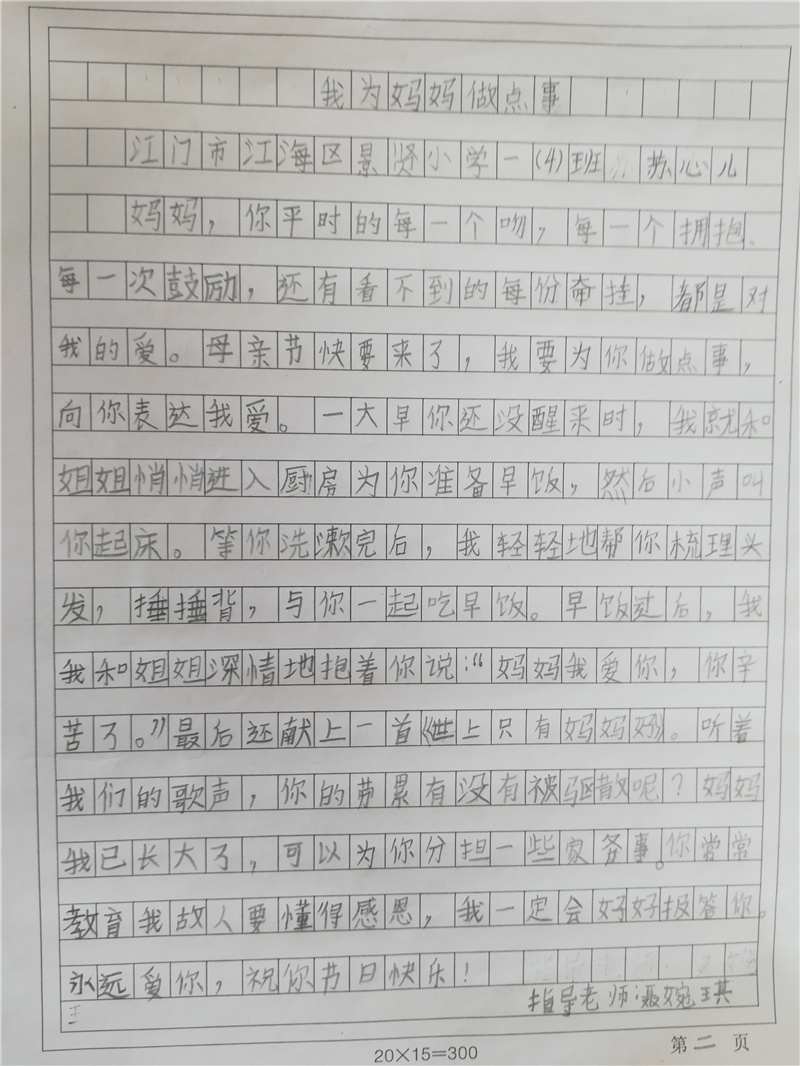 我为妈妈做点事
江门市江海区景贤小学一(4)班 苏心儿
妈妈，你平时的每一个吻，每一个拥抱、
每一次鼓励，还有看不到的每份牵挂，都是对
我的爱。母亲节快要来了，我要为你做点事，
向你表达我爱。一大早你还没醒来时，我就和
姐姐悄悄进入厨房为你准备早饭，然后小声叫
你起床。等你洗漱完后，我轻轻地帮你梳理头
发，捶捶背，与你一起吃早饭。早饭过后，我
我和姐姐深情地抱着你说：“妈妈我爱你，你辛
苦了。”最后还献上一首《世上只有妈妈好》。听着
我们的歌声，你的劳累有没有被驱散呢？妈妈
我已长大了，可以为你分担一些家务事。你常常
教育我做人要懂得感恩，我一定会好好报答你。
永远爱你，祝你节日快乐！
指导老师：聂婉琪
20×15=300
第二页